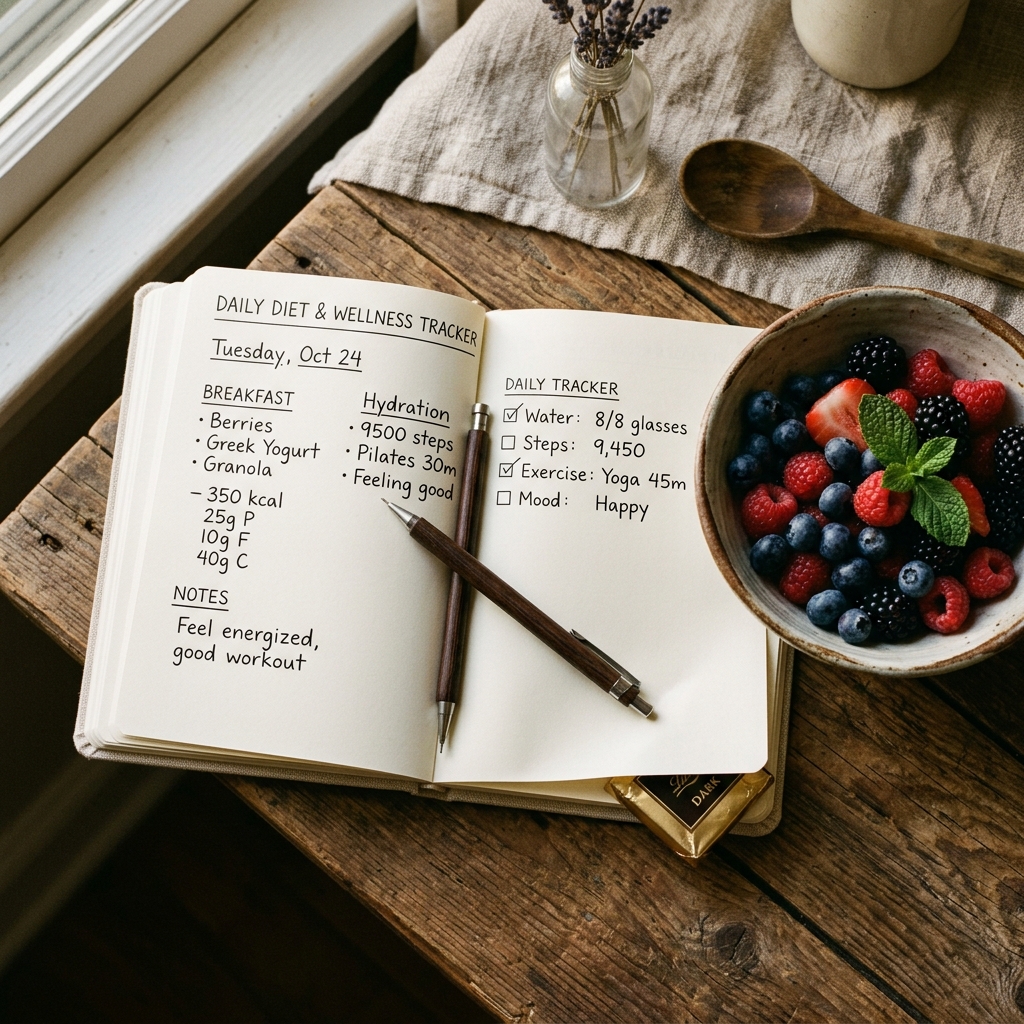 DAILY DIET & WELLNESS TRACKER
Tuesday, Oct 24
BREAKFAST
• Berries
• Greek Yogurt
• Granola
– 350 kcal
25g P
10g F
40g C
NOTES
Feel energized,
good workout
Hydration
• 9500 steps
• Pilates 30m
• Feeling good
DAILY TRACKER
☑ Water: 8/8 glasses
☐ Steps: 9,450
☑ Exercise: Yoga 45m
☐ Mood: Happy
DARK